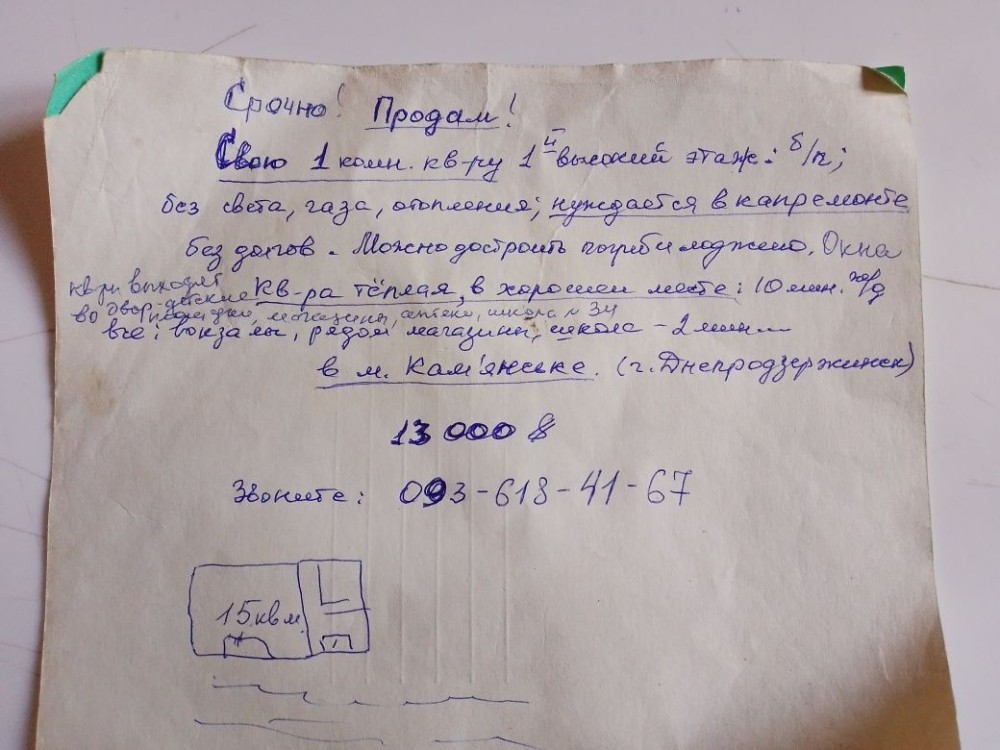 Срочно! Продам!
Свою 1 комн. кв-ру 1й высокий этаж: б/п;
без света, газа, отопления; нуждается в капремонте
без долгов. Можно достроить погреб и лоджию. Окна
кв-ры выходят
во двор-детские кв-ра тёплая, в хорошем месте: 10 мин.
площадки, магазины, аптеки, школа N 34
все: вокзалы, рядом магазины, школа - 2 мин.
в м. Кам'янське. (г. Днепродзержинск)
13 000 $
Звоните: 093-618-41-67
15 кв м.